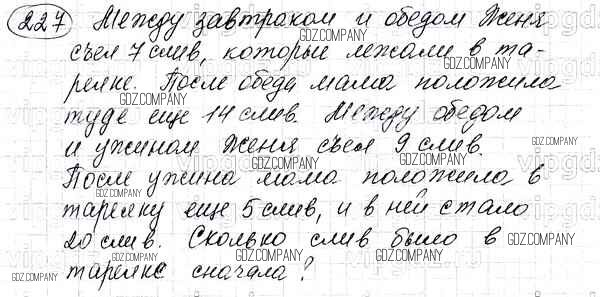 227 Между завтраком и обедом Женя
съел 7 слив, которые лежали в та-
релке. После обеда мама положила
туде еще 14 слив. Между обедом
и ужином Женя съел 9 слив.
После ужина мама положила в
тарелку еще 5 слив, и в ней стало
20 слив. Сколько слив было в
тарелке сначала?
GDZ.COMPANY
GDZ.COMPANY
GDZ.COMPANY
GDZ.COMPANY
GDZ.COMPANY
GDZ.COMPANY
GDZ.COMPANY
GDZ.COMPANY
GDZ.COMPANY
GDZ.COMPANY
GDZ.COMPANY
GDZ.COMPANY
GDZ.COMPANY